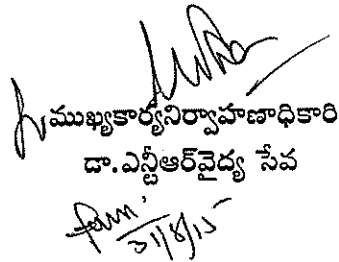 ముఖ్యకార్యనిర్వాహణాధికారి
డా.ఎన్టీఆర్‌వైద్య సేవ
31/8/15